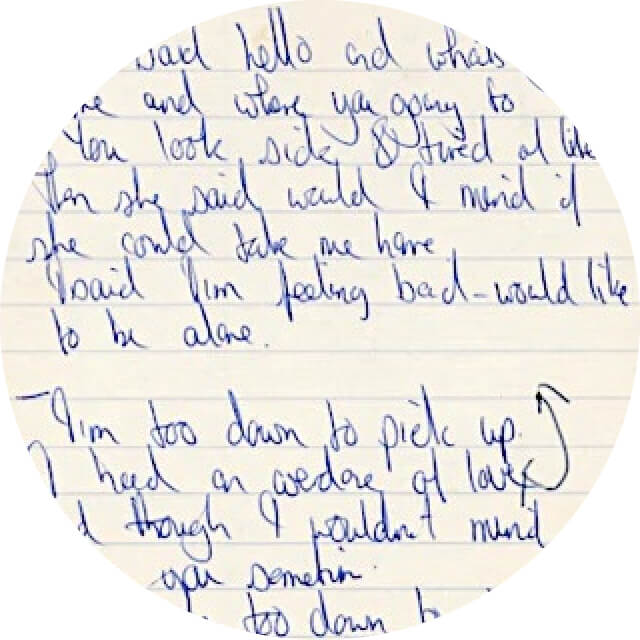 said hello and whats
and where you going to
You look sick & tired of life
Then she said would I mind if
she could take me home
I said I'm feeling bad - would like
to be alone.
I'm too down to pick up.
I need an overdose of love
though I wouldn't mind
you sometim.
too down to